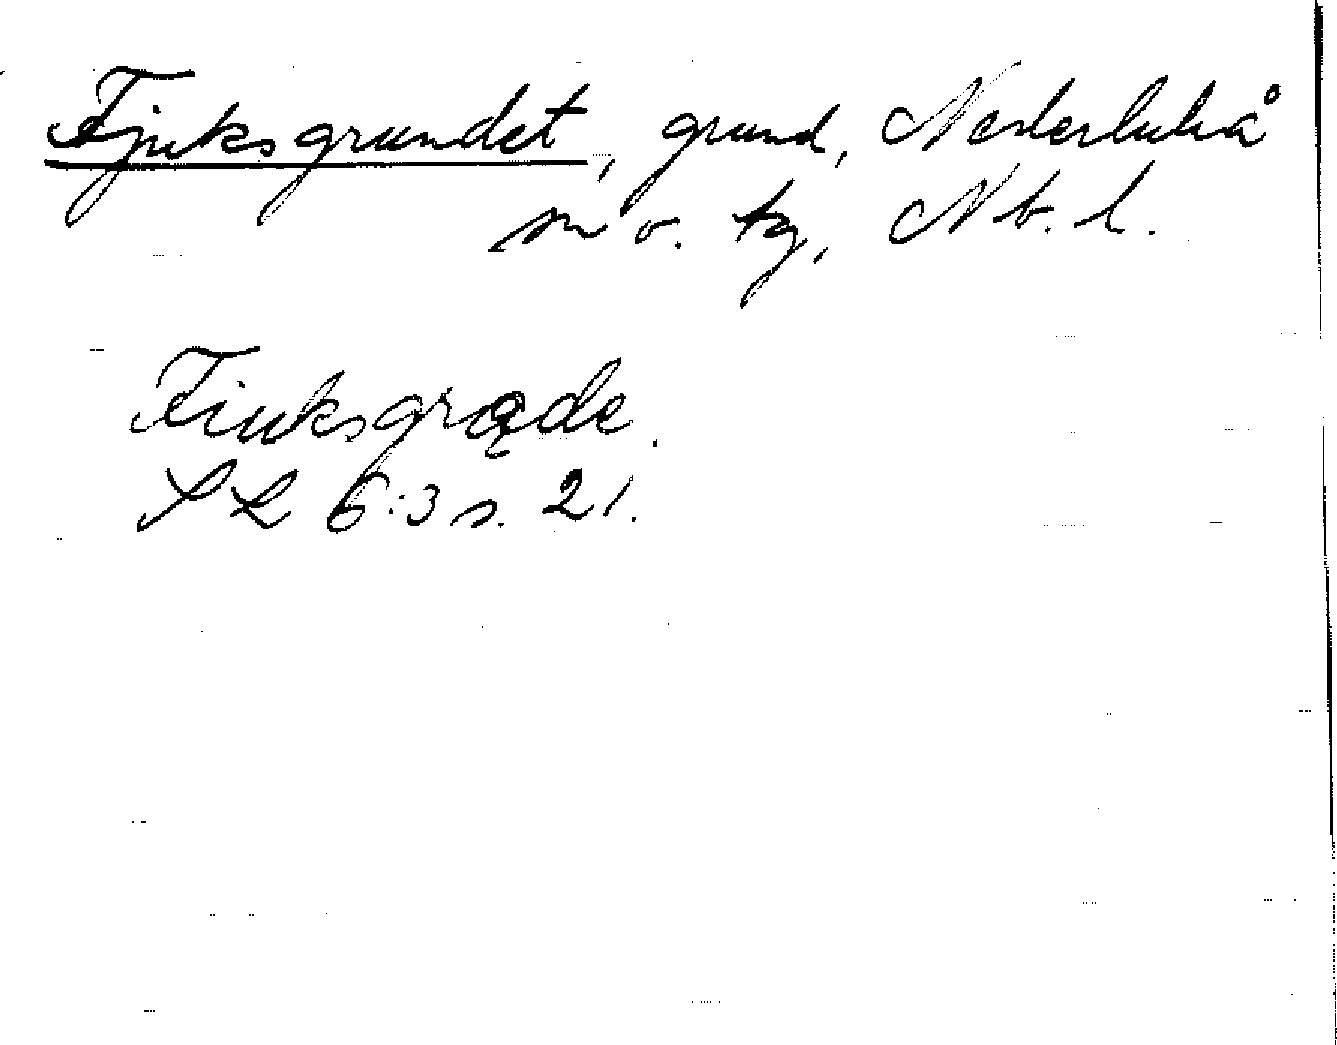 Fjuksgrundet, grund, Nederluleå
sn o. tg, Nb. l.
Fiuksgrąde.
SL 6:3 s. 21.